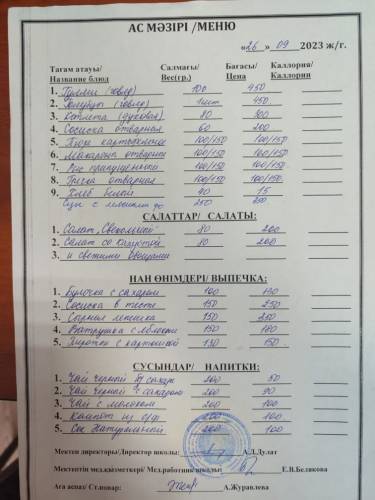 АС МӘЗІРІ /МЕНЮ
«26» 09 2023 ж/г.
Тағам атауы/ Салмағы/ Бағасы/ Каллория/
Название блюд Вес(гр.) Цена Каллории
1. 100 450
2. Голубцы 1шт 450
3. Котлета (духовая) 80 300
4. Сосиска отварная 60 200
5. Пюре картофельное 100/150 100/150
6. Макароны отварные 100/150 100/150
7. Рис припущенный 100/150 100/150
8. Гречка отварная 100/150 100/150
9. Хлеб белый 40 15
Супы с 250 250
САЛАТТАР/ САЛАТЫ:
1. Салат „Свекольный" 80 200
2. Салат со капустой 80 200
3. и свежими овощами
НАН ӨНІМДЕРІ/ ВЫПЕЧКА:
1. Булочка с сахаром 100 130
2. Сосиска в тесте 150 250
3. Сырная лепешка 150 250
4. Ватрушка с яблоком 150 180
5. Пирожки с картошкой 130 150
СУСЫНДАР/ НАПИТКИ:
1. Чай черный б/сахар 200 50
2. Чай черный с сахаром 200 90
3. Чай с молоком 200 100
4. Компот из с/ф 200 100
5. Сок Натуральный 200 100
Мектеп директоры/Директор школы: А.Л.Дулат
Мектептің мед.қызметкері/ Мед.работник школы: Е.В.Белякова
Аға аспаз/ Ст.повар: А.Журавлева